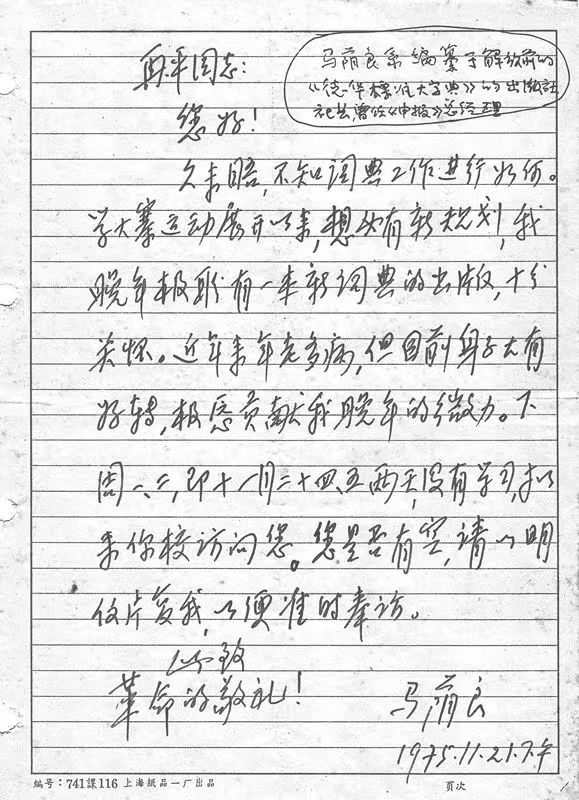 再平同志:
马荫良系编纂于解放前的
《德华标准大字典》的出版社
社长曾任《申报》总经理
您好!
久未晤,不知词典工作进行如何。
学大寨运动展开以来,想必有新规划,我
晚年极盼有一本新词典的出版,十分
关怀。近年来年老多病,但目前身子大有
好转,极愿贡献我晚年的微力。下
周一、二,即十一月二十四、五两天,没有学习,拟
来你校访问您。您是否有空,请以明
信片复我,以便准时奉访。
此致
革命的敬礼!
马荫良
1975.11.21.下午
编号:741課116 上海紙品一厂出品
頁次